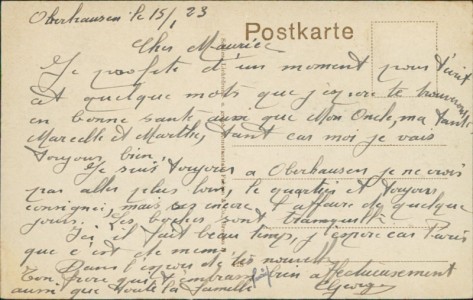 Oberhausen le 15/1 23
Postkarte
Cher Maurice
Je profite d'un moment pour t'écrire
cet quelque mots que j'espère te trouverons
en bonne santé ainsi que Mon Oncle, ma tante
Marcelle et Marthe, tant cas moi je vais
toujours bien.
Je suis toujours a Oberhausen je ne crois
pas aller plus loin, le quartier est toujours
consigné, mais ces encore l'affaire de quelque
jours. Les boches sont tranquille.
Ici il fait beau temps, j'espère cas Paris
que c'est de meme.
Dans l'espoir de tes nouvelle
ton frère qui t'embrasse bien affectueusement
ainsi que toute la famille Georges